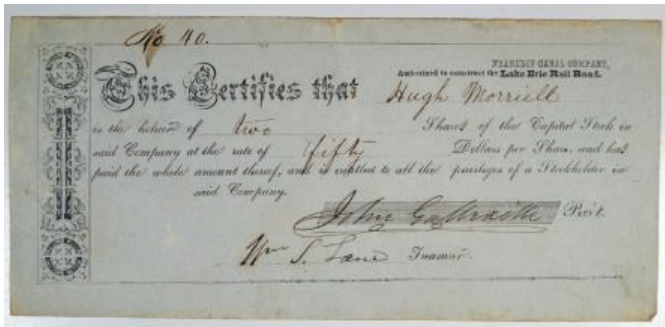 No 40.
FRANKLIN CANAL COMPANY,
Authorised to construct the Lake Erie Rail Road.
This Certifies that Hugh Morriell
is the holder of two Shares of the Capital Stock in
said Company at the rate of fifty Dollars per Share, and has
paid the whole amount thereof, and is entitled to all the privileges of a Stockholder in
said Company.
John Galbraith Pres't.
Wm S. Lane